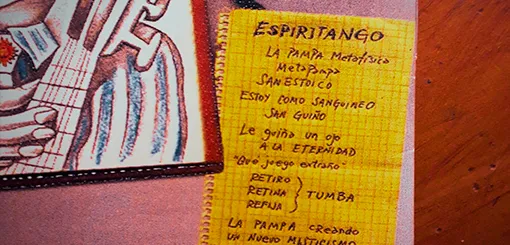 ESPIRITANGO
LA PAMPA Metafísica
MetaPampa
SANESTOICO
ESTOY COMO SANGUINEO
SAN GUIÑO
Le guiña un ojo
A LA ETERNIDAD
"Qué juego extraño"
RETIRO
RETINA
REFINA
TUMBA
LA PAMPA CReando
UN NUEVO MISTICISMO